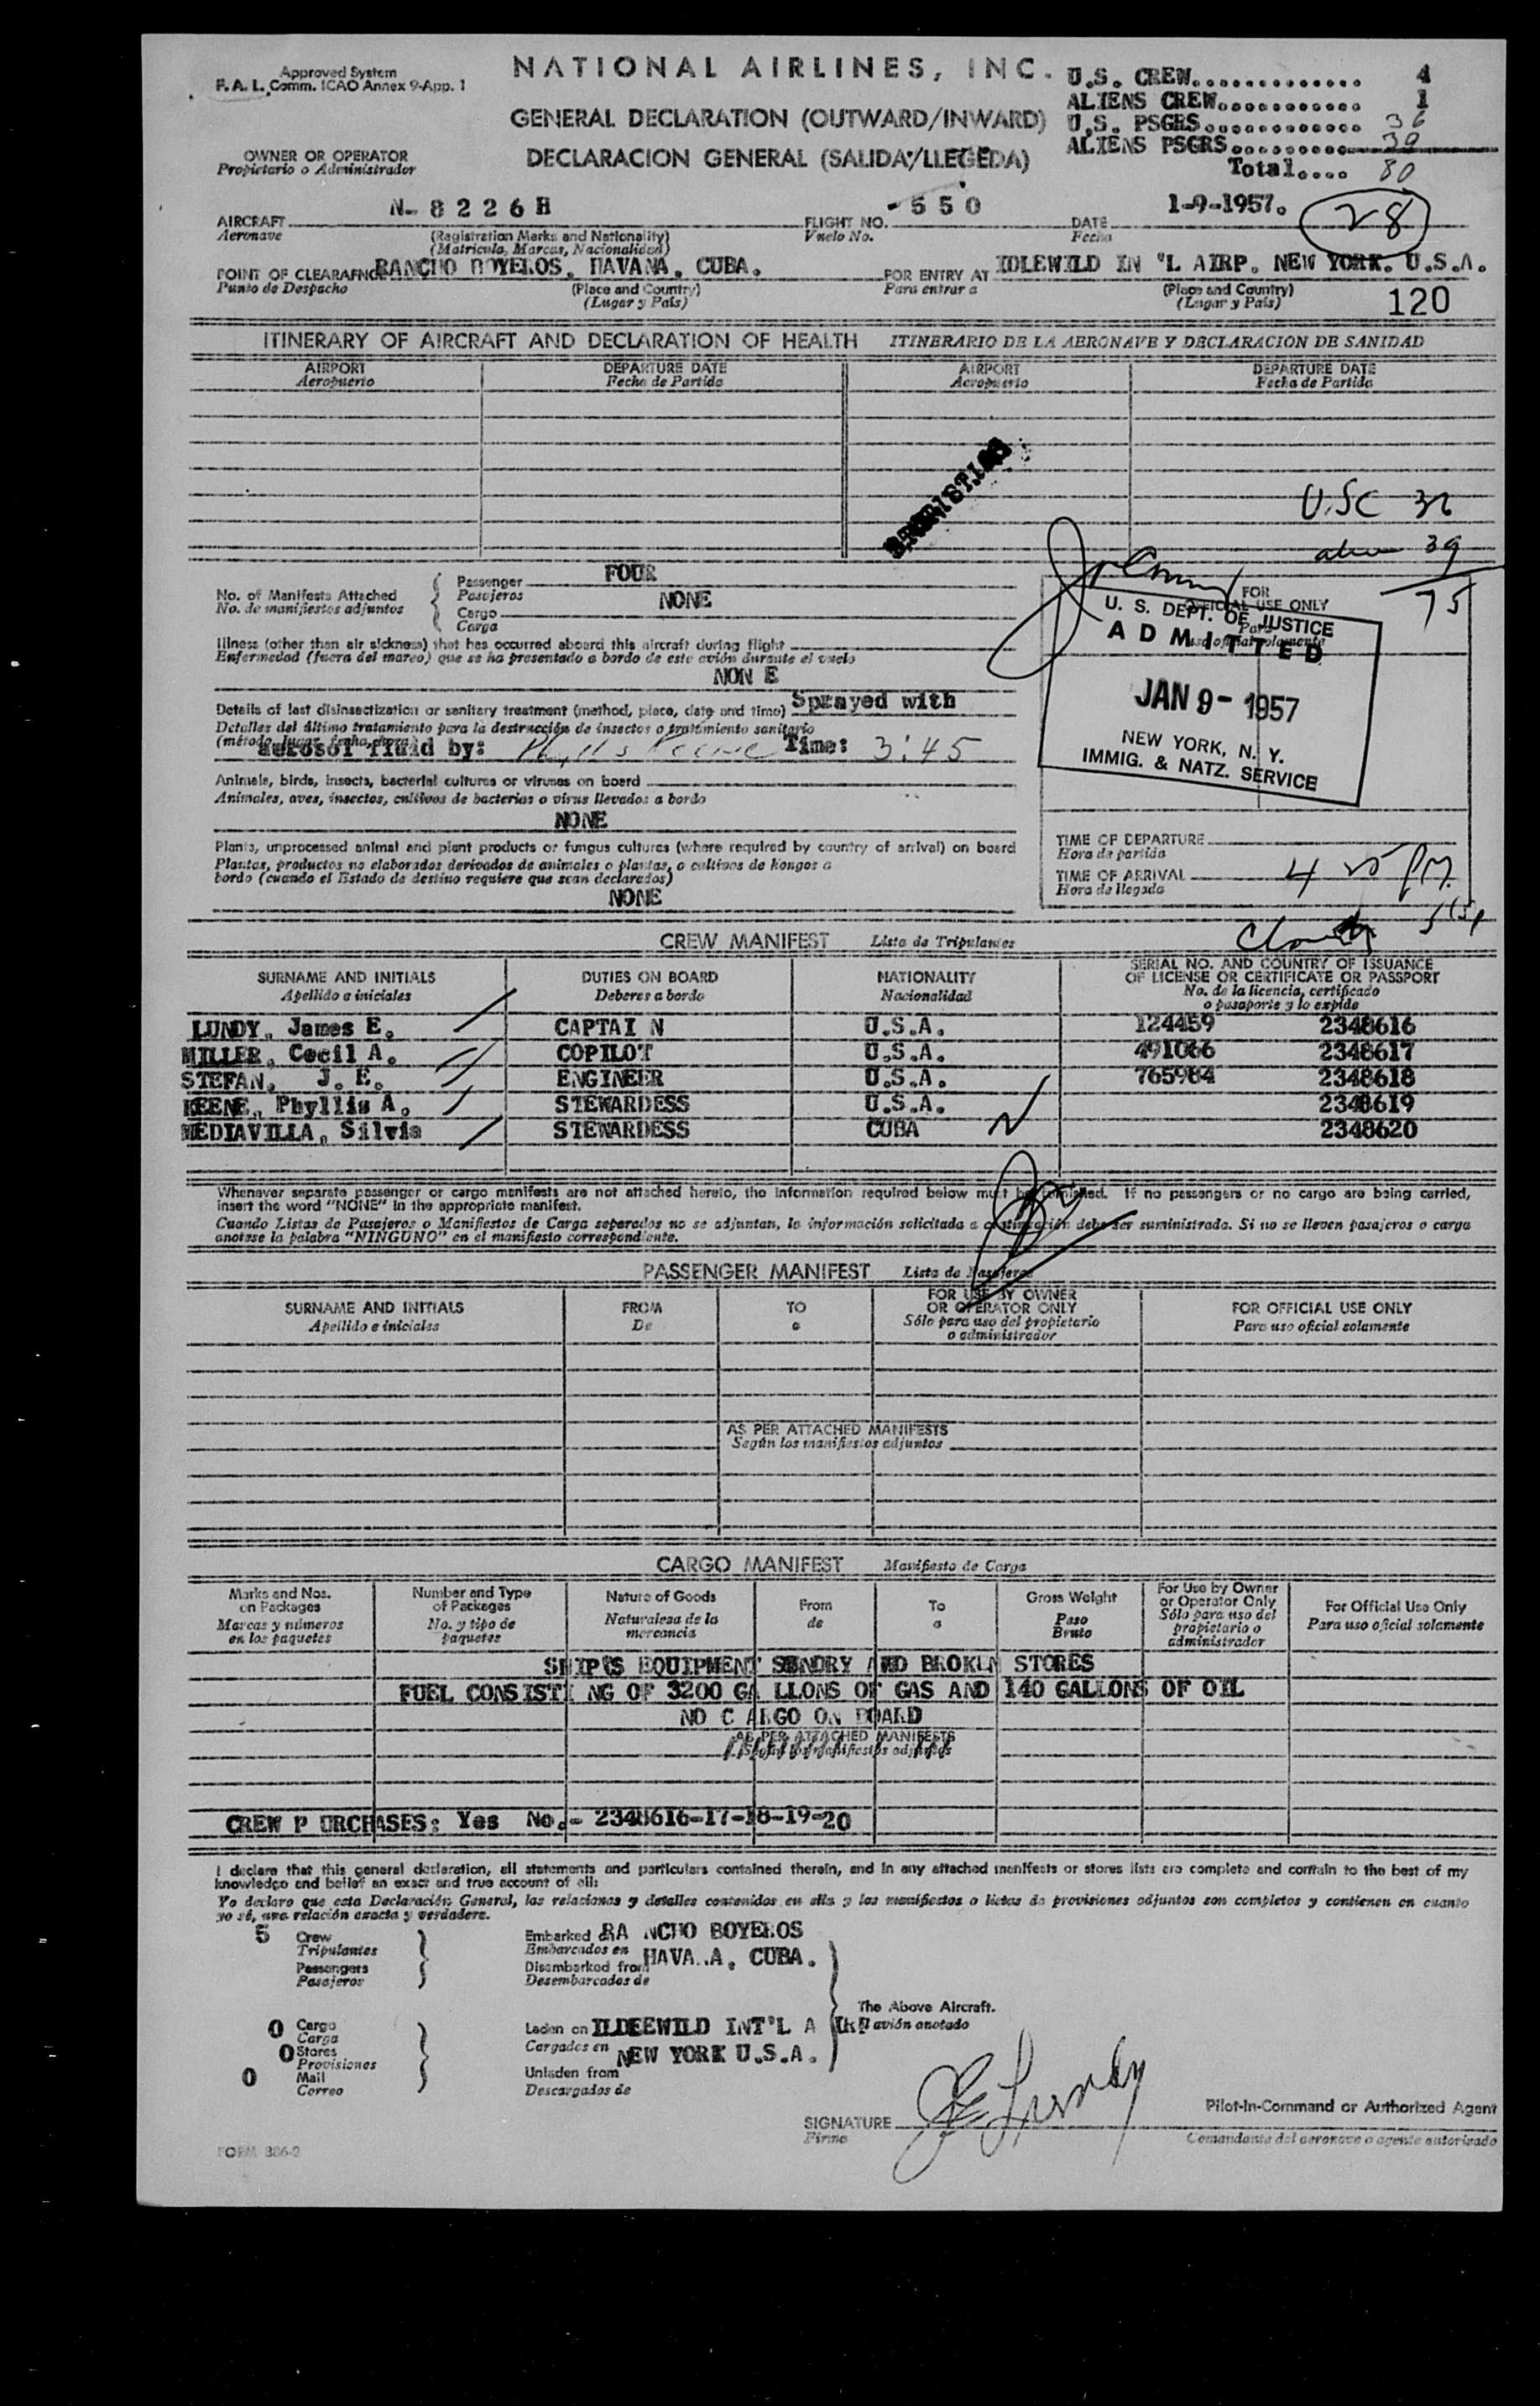 Approved System
F. A. L. Comm. ICAO Annex 9-App. 1
NATIONAL AIRLINES, INC.
GENERAL DECLARATION (OUTWARD/INWARD)
DECLARACION GENERAL (SALIDA/LLEGEDA)
U.S. CREW.............. 4
ALIENS CREW............ 1
U.S. PSGRS............. 36
ALIENS PSGRS.......... 39
Total.... 80
OWNER OR OPERATOR
Propietario o Administrador
AIRCRAFT N- 8 2 2 6 H FLIGHT NO. - 5 5 0 DATE 1-9-1957.
Aeronave (Registration Marks and Nationality) Vuelo No. Fecha
(Matricula, Marcas, Nacionalidad)
28
POINT OF CLEARAFNC RANCHO BOYEROS, HAVANA, CUBA. FOR ENTRY AT IDLEWILD IN 'L AIRP. NEW YORK. U.S.A.
Punto de Despacho (Place and Country) Para entrar a (Place and Country)
(Lugar y País) (Lugar y País)
120
ITINERARY OF AIRCRAFT AND DECLARATION OF HEALTH ITINERARIO DE LA AERONAVE Y DECLARACION DE SANIDAD
AIRPORT DEPARTURE DATE AIRPORT DEPARTURE DATE
Aeropuerto Fecha de Partida Aeropuerto Fecha de Partida
USC 36
alien 39
75
No. of Manifests Attached
No. de manifiestos adjuntos
Passenger FOUR
Pasajeros
Cargo NONE
Carga
FOR
OFFICIAL USE ONLY
Para
uso oficial solamente
U. S. DEPT. OF JUSTICE
ADMITTED
JAN 9 - 1957
NEW YORK, N. Y.
IMMIG. & NATZ. SERVICE
Illness (other than air sickness) that has occurred aboard this aircraft during flight
Enfermedad (fuera del mareo) que se ha presentado a bordo de este avión durante el vuelo
NON E
Details of last disinsectization or sanitary treatment (method, place, date and time) Sprayed with
Detalles del último tratamiento para la destrucción de insectos o tratamiento sanitario
(método, lugar, fecha, hora)
aerosol fluid by: Phyllis Keene Time: 3:45
Animals, birds, insects, bacterial cultures or viruses on board
Animales, aves, insectos, cultivos de bacterias o virus llevados a bordo
NONE
Plants, unprocessed animal and plant products or fungus cultures (where required by country of arrival) on board
Plantas, productos no elaborados derivados de animales o plantas, o cultivos de hongos a
bordo (cuando el Estado de destino requiere que sean declarados)
NONE
TIME OF DEPARTURE
Hora de partida
TIME OF ARRIVAL
Hora de llegada
CREW MANIFEST Lista de Tripulantes
SURNAME AND INITIALS DUTIES ON BOARD NATIONALITY SERIAL NO. AND COUNTRY OF ISSUANCE
OF LICENSE OR CERTIFICATE OR PASSPORT
Apellido e iniciales Deberes a bordo Nacionalidad No. de la licencia, certificado
o pasaporte y lo expide
LUNDY, James E. CAPTAI N U.S.A. 124459 2348616
MILLER, Cecil A. COPILOT U.S.A. 491066 2348617
STEFAN, J. E. ENGINEER U.S.A. 765984 2348618
KEENE, Phyllis A. STEWARDESS U.S.A. 2348619
MEDIAVILLA, Silvia STEWARDESS CUBA 2348620
Whenever separate passenger or cargo manifests are not attached hereto, the information required below must be furnished. If no passengers or no cargo are being carried,
insert the word "NONE" in the appropriate manifest.
Cuando Listas de Pasajeros o Manifiestos de Carga separados no se adjuntan, la información solicitada a continuación debe ser suministrada. Si no se lleven pasajeros o carga
anotase la palabra "NINGUNO" en el manifiesto correspondiente.
PASSENGER MANIFEST Lista de Pasajeros
SURNAME AND INITIALS FROM TO FOR USE BY OWNER
OR OPERATOR ONLY FOR OFFICIAL USE ONLY
Apellido e iniciales De a Sólo para uso del propietario
o administrador Para uso oficial solamente
AS PER ATTACHED MANIFESTS
Según los manifiestos adjuntos
CARGO MANIFEST Manifiesto de Carga
Marks and Nos.
on Packages
Marcas y números
en los paquetes
Number and Type
of Packages
No. y tipo de
paquetes
Nature of Goods
Naturalesa de la
mercancia
From
de
To
a
Gross Weight
Paso
Bruto
For Use by Owner
or Operator Only
Sólo para uso del
propietario o
administrador
For Official Use Only
Para uso oficial solamente
SHIP'S EQUIPMENT SUNDRY AND BROKEN STORES
FUEL CONSISTI NG OF 3200 GA LLONS OF GAS AND 140 GALLONS OF OIL
NO C ARGO ON BOARD
AS PER ATTACHED MANIFESTS
Según los manifiestos adjuntos
CREW P URCHASES: Yes No.- 2348616-17-18-19-20
I declare that this general declaration, all statements and particulars contained therein, and in any attached manifests or stores lists are complete and contain to the best of my
knowledge and belief an exact and true account of all:
Yo declaro que esta Declaración General, las relaciones y detalles contenidos en ella y los manifiestos o listas de provisiones adjuntos son completos y contienen en cuanto
yo sé, una relación exacta y verdadera.
5 Crew
Tripulantes
Passengers
Pasajeros
Embarked on RA NCHO BOYEROS
Embarcados en
Disembarked from HAVA..A, CUBA.
Desembarcados de
0 Cargo
Carga
0 Stores
Provisiones
0 Mail
Correo
Laden on ILDEEWILD INT'L A IRP
Cargados en NEW YORK U.S.A.
Unladen from
Descargados de
The Above Aircraft.
El avión anotado
SIGNATURE J E Lundy
Firma
Pilot-In-Command or Authorized Agent
Comandante del aeronave o agente autorizado
FORM 386-2